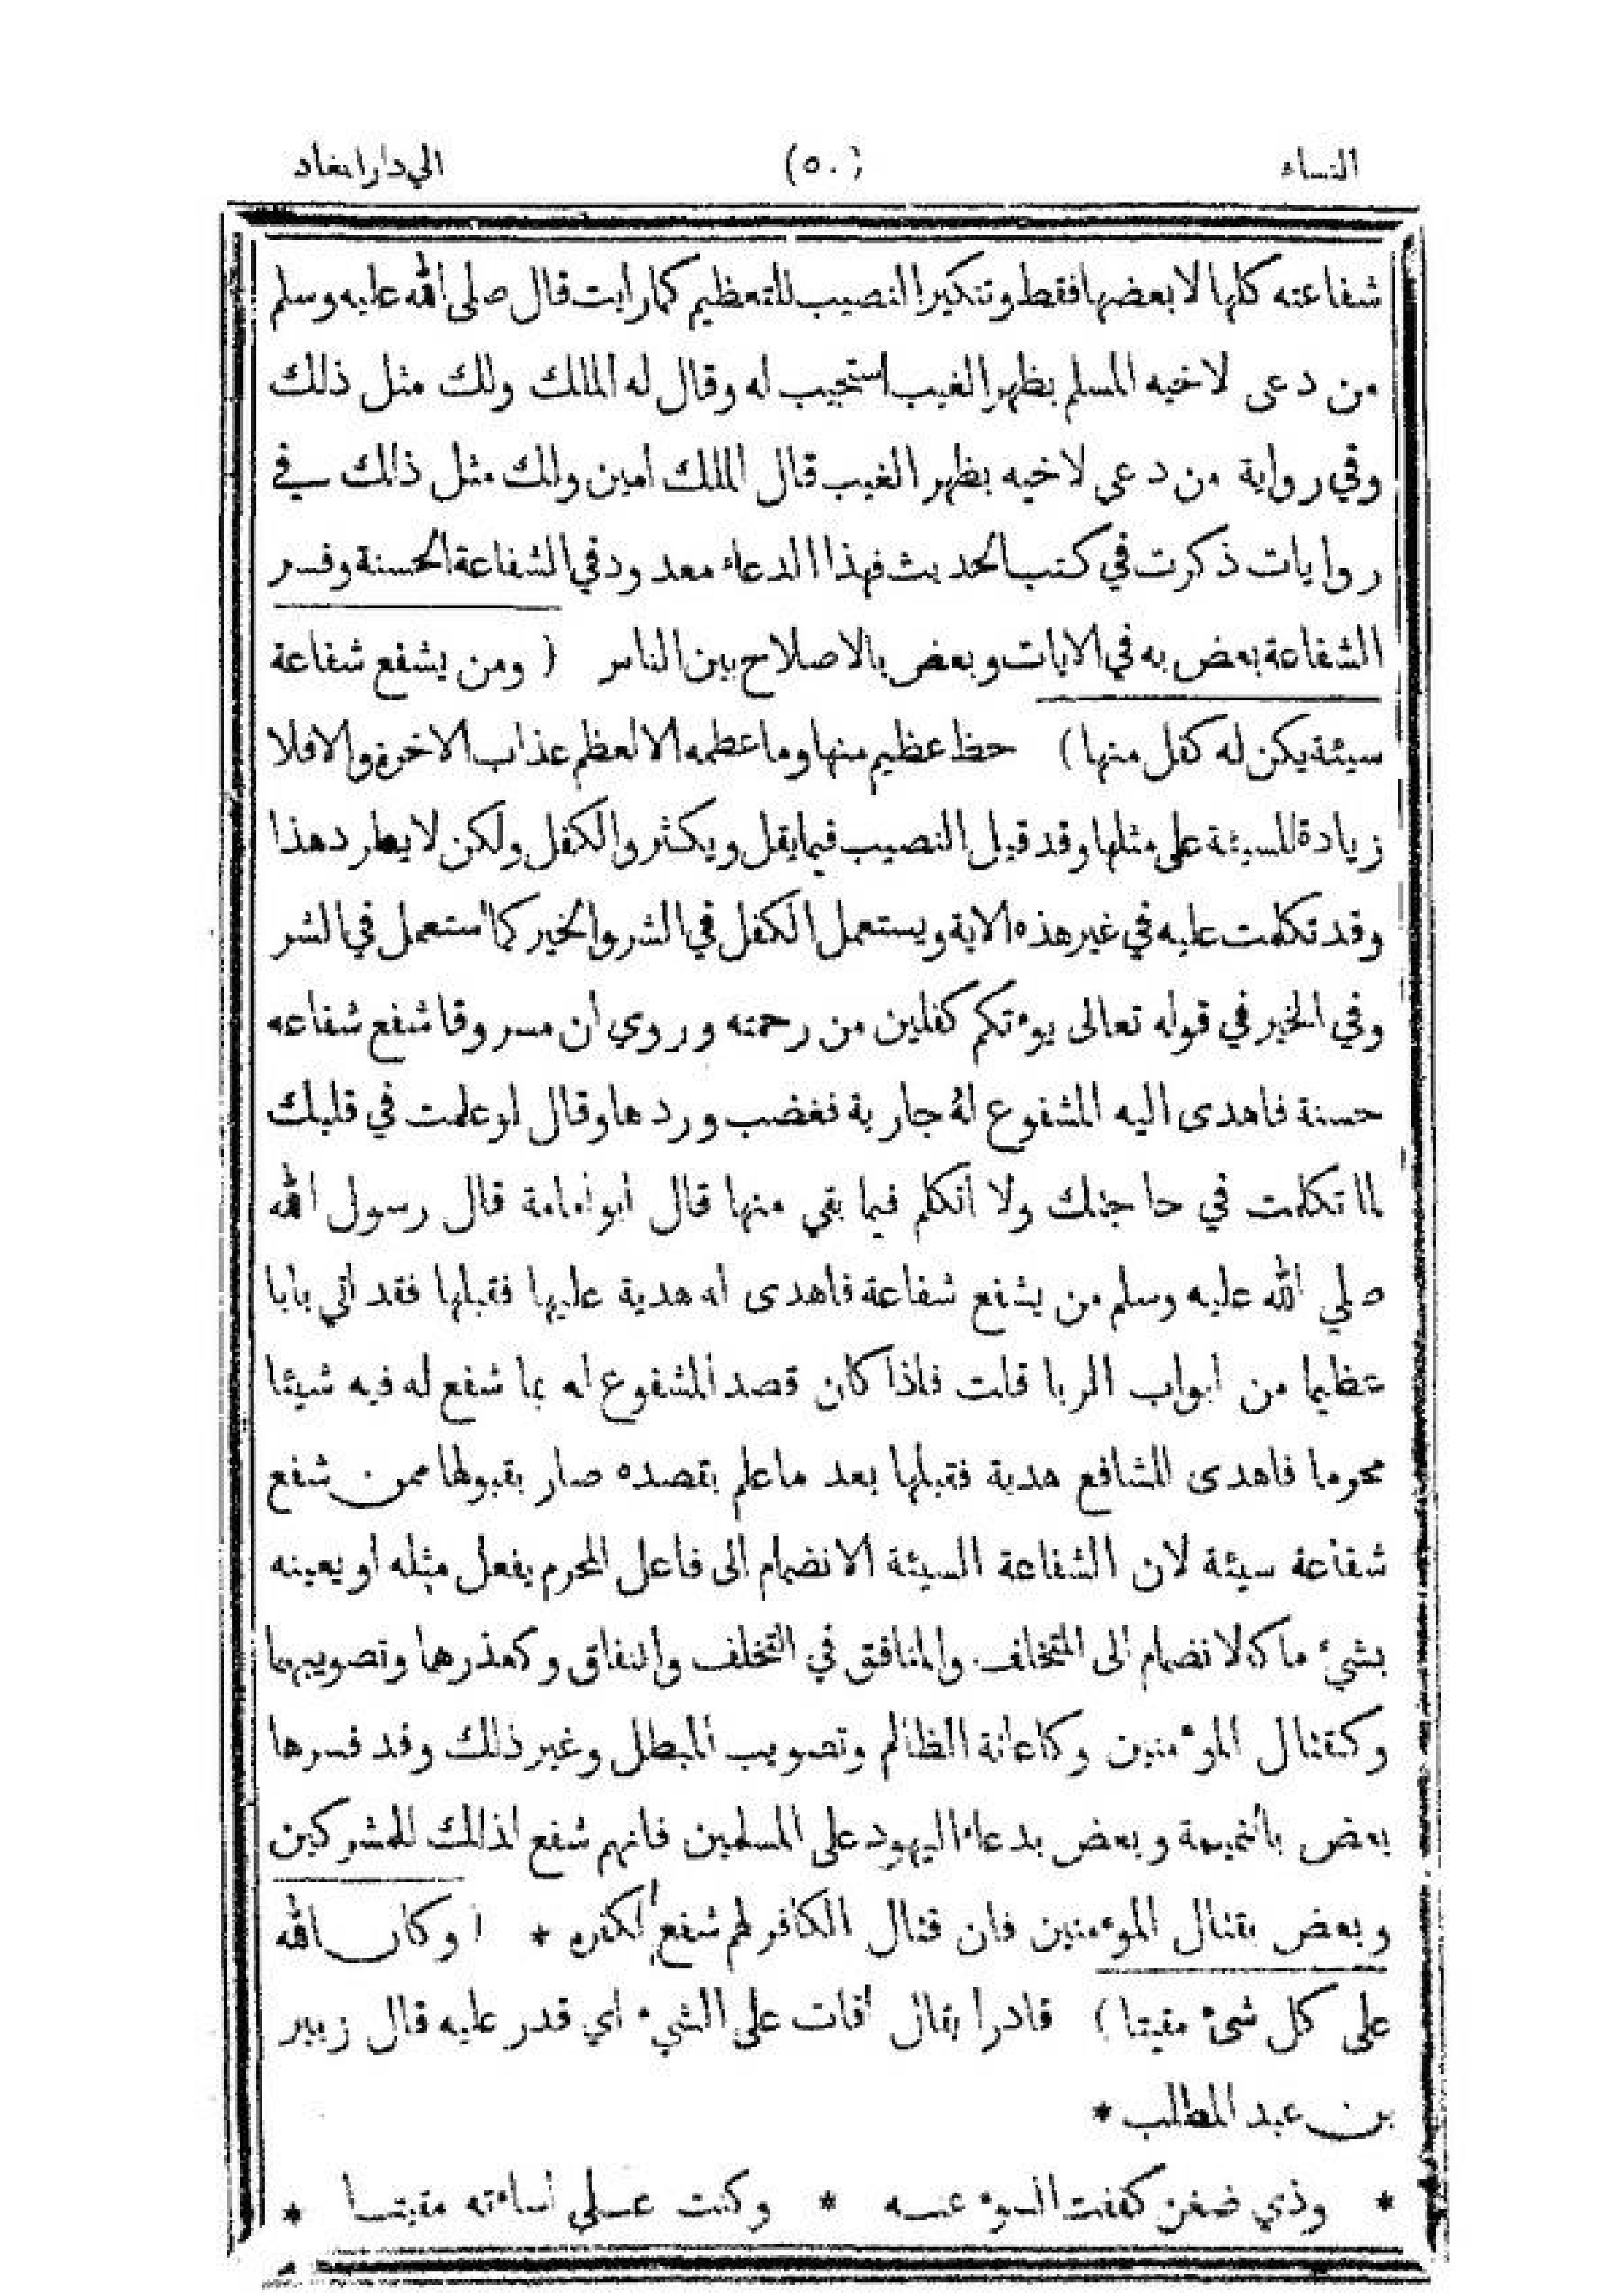 النساء (٥٠) الي دار المعاد
شفاعته كلها لا بعضها فقط وتنكير النصيب للتعظيم كما رايت قال صلى الله عليه وسلم
من دعى لاخيه المسلم بظهر الغيب استجيب له وقال له الملك ولك مثل ذلك
وفي رواية من دعى لاخيه بظهر الغيب قال الملك امين ولك مثل ذلك في
روايات ذكرت في كتب الحديث فهذا الدعاء معدود في الشفاعة الحسنة وفسر
الشفاعة بعض به في الايات وبعض بالاصلاح بين الناس ( ومن يشفع شفاعة
سيئة يكن له كفل منها ) حظ عظيم منها وما عظمه الا لعظم عذاب الاخرة والا فلا
زيادة للسيئة على مثلها وقد قيل النصيب فيما يقل ويكثر والكفل ولكن لا يطرد هذا
وقد تكلمت عليه في غير هذه الاية ويستعمل الكفل في الشر والخير كما استعمل في الشر
وفي الخير في قوله تعالى يوءتكم كفلين من رحمته وروي ان مسروقا شفع شفاعه
حسنة فاهدى اليه المشفوع له جارية فغضب وردها وقال لو علمت في قلبك
لما تكلمت في حاجتك ولا اتكلم فيما بقي منها قال أبو أمامة قال رسول الله
صلي الله عليه وسلم من يشفع شفاعة فاهدى له هدية عليها فقبلها فقد اتي بابا
عظيما من ابواب الربا قلت فاذا كان قصد المشفوع له بما شفع له فيه شيئا
محرما فاهدى للشافع هدية فقبلها بعد ما علم بقصده صار بقبولها ممن شفع
شفاعة سيئة لان الشفاعة السيئة الانضمام الى فاعل المحرم يفعل مثله أو يعينه
بشيء ما كالانضمام الى المتخلف والمنافق في التخلف والنفاق وكعذرهما وتصويبهما
وكقتال الموءمنين وكاعانة الظالم وتصويب المبطل وغير ذلك وقد فسرها
بعض بالنميمة وبعض بدعاء اليهود على المسلمين فانهم شفع لذلك للمشركين
وبعض بقتال الموءمنين فان قتال الكافر لهم شفع لكفره * ( وكان الله
على كل شيء مقيتا ) قادرا يقال أقات على الشيء اي قدر عليه قال زبير
بن عبد المطلب *
* وذي ضغن كففت السوء عنه * وكنت على اساءته مقيتا *